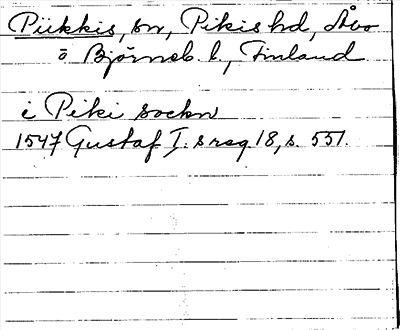 Piikkis, sn, Pikis hd, Åbo
o Björneb. l., Finland
i Piki sockn
1547 Gustaf I. s reg. 18, s. 551.